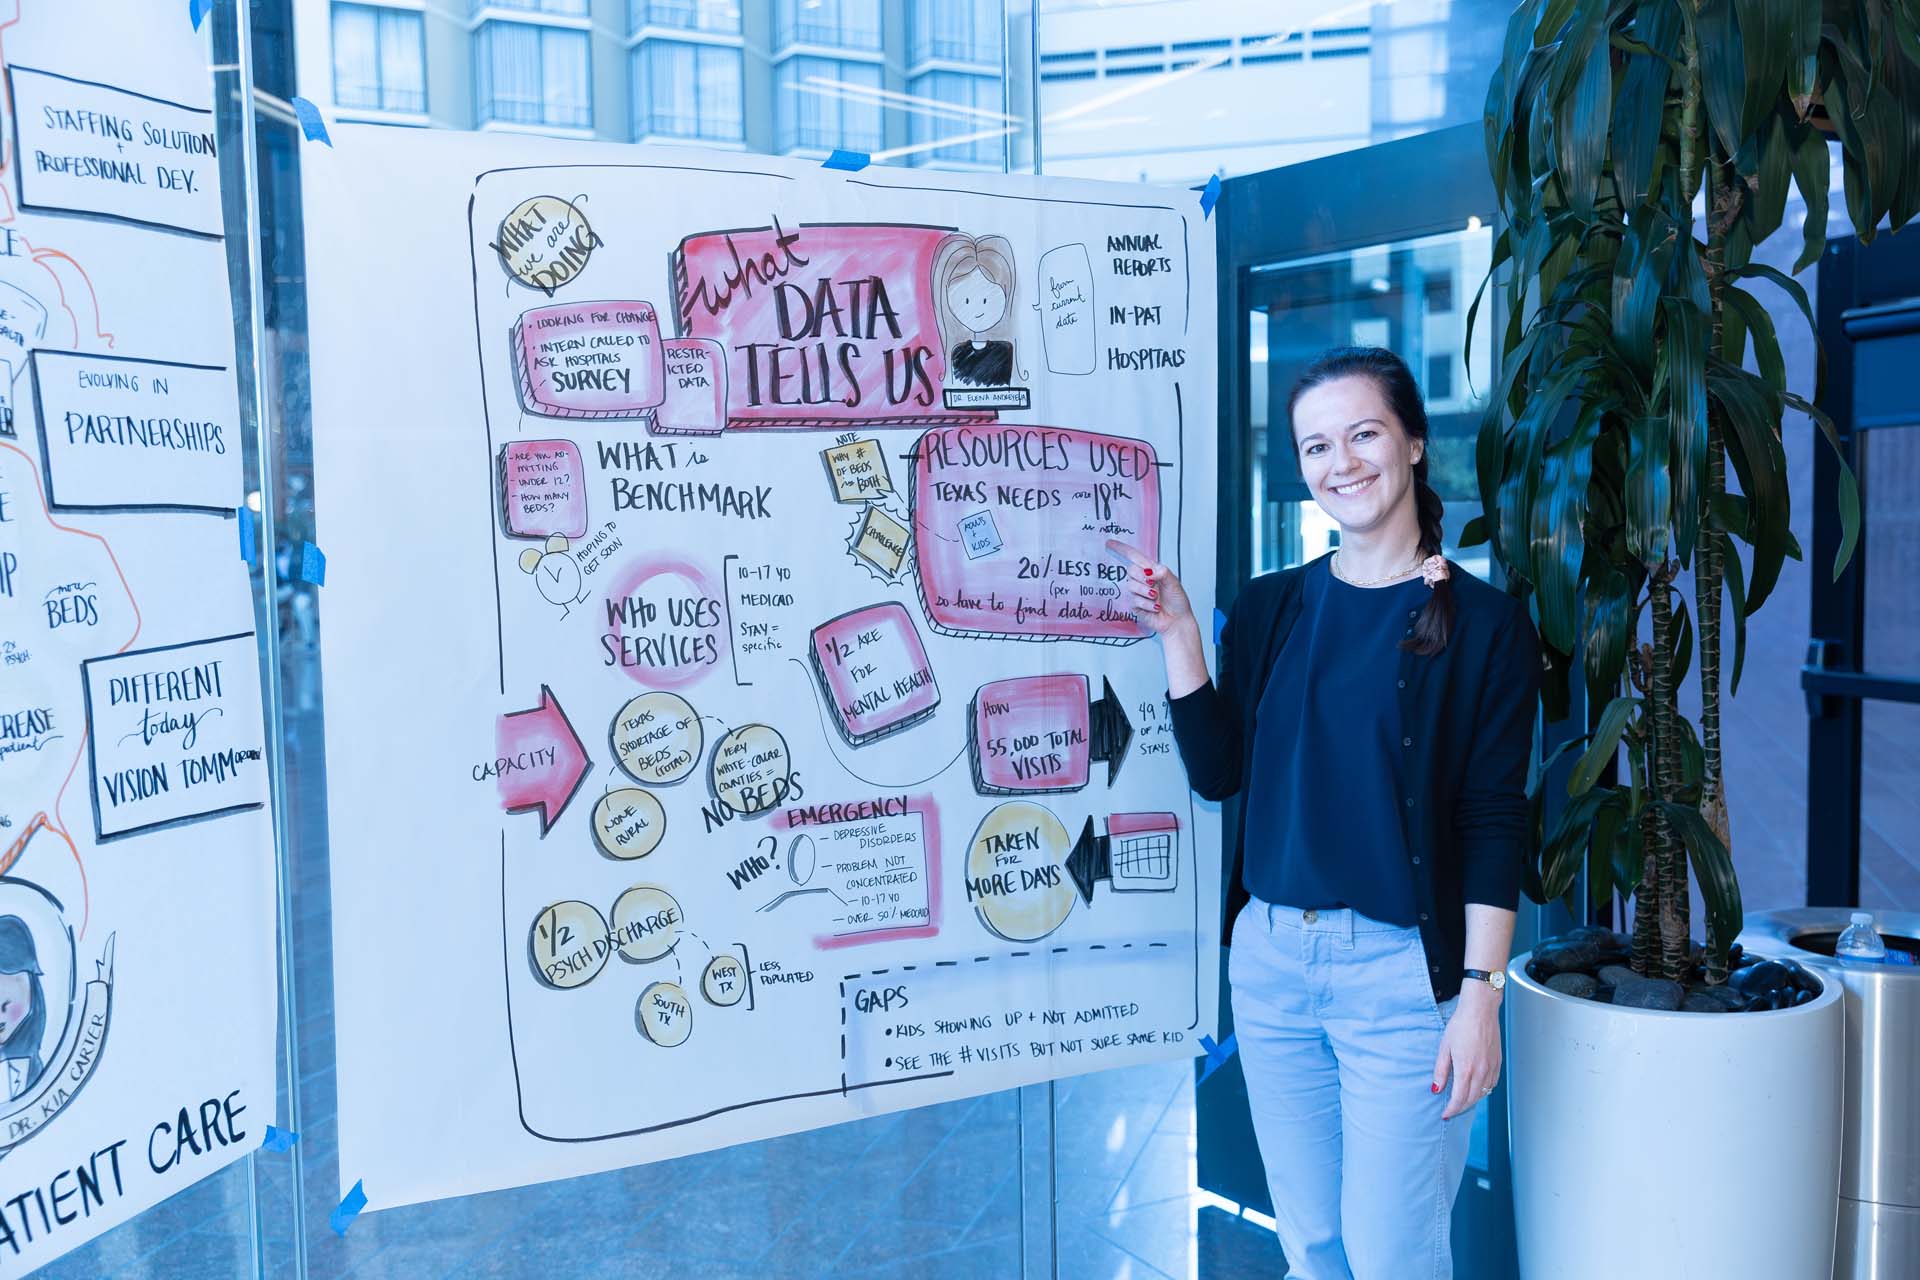 STAFFING SOLUTION
+
PROFESSIONAL DEV.
EVOLVING IN
PARTNERSHIPS
more
BEDS
2x
PSYCH.
DIFFERENT
today
VISION TOMMOROW
DR. KIA CARTER
ATIENT CARE
WHAT
we are
DOING
• LOOKING FOR CHANGE
• INTERN CALLED TO
ASK HOSPITALS
SURVEY
RESTR-
ICTED
DATA
what
DATA
TELLS US
DR. ELENA ANDREYEVA
from
current
data
ANNUAL
REPORTS
IN-PAT
HOSPITALS
- ARE YOU AD-
MITTING
- UNDER 12?
- HOW MANY
BEDS?
HOPING TO
GET SOON
WHAT is
BENCHMARK
NOTE
WHY #
OF BEDS
is BOTH
CHALLENGE
RESOURCES USED
TEXAS NEEDS
18th
in nation
ADULTS
+
KIDS
20% LESS BED
(per 100.000)
so have to find data elsew
WHO USES
SERVICES
10-17 YO
MEDICAID
STAY =
specific
1/2 ARE
FOR
MENTAL HEALTH
HOW
55,000 TOTAL
VISITS
49 %
OF ALL
STAYS
CAPACITY
TEXAS
SHORTAGE OF
BEDS
(TOTAL)
VERY
WHITE-COLLAR
COUNTIES =
NO BEDS
NONE
RURAL
EMERGENCY
WHO?
- DEPRESSIVE
DISORDERS
- PROBLEM NOT
CONCENTRATED
- 10-17 YO
- OVER 50% MEDICAID
TAKEN
FOR
MORE DAYS
1/2
PSYCH DISCHARGE
WEST
TX
LESS
POPULATED
SOUTH
TX
GAPS
• KIDS SHOWING UP + NOT ADMITTED
• SEE THE # VISITS BUT NOT SURE SAME KID